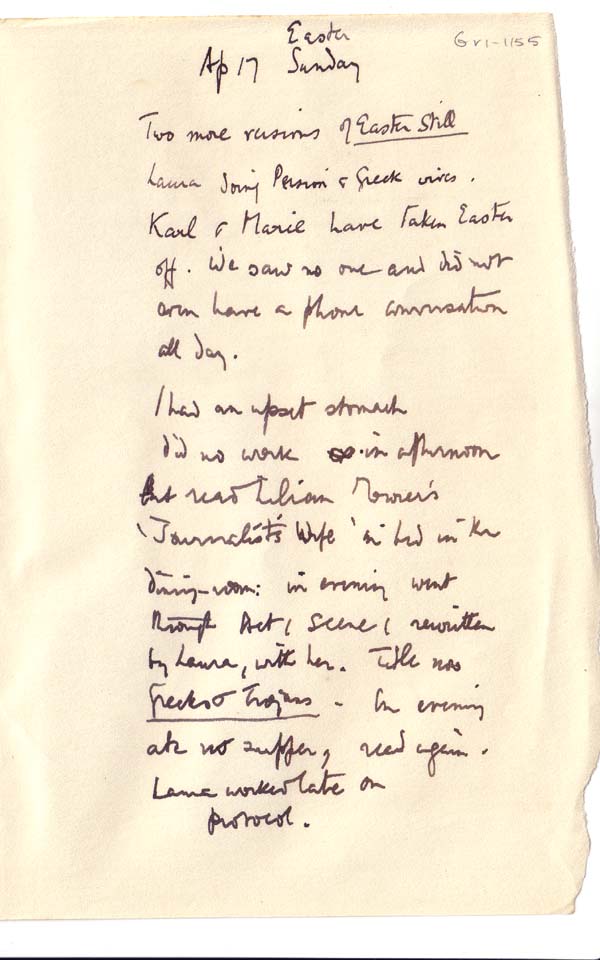 Easter
Gv1-1155
Ap 17 Sunday
Two more versions of Easter Still
Laura doing Persian & Greek wires.
Karl & Marie have taken Easter
off. We saw no one and did not
even have a phone conversation
all day.
I had an upset stomach
did no work in afternoon
but read Lilian Mowrer's
'Journalist's Wife' in bed in the
dining-room: in evening went
through Act 1 Scene 1 rewritten
by Laura, with her. Title now
Greeks & Trojans - In evening
ate no supper, read again.
Laura worked late on
protocol.